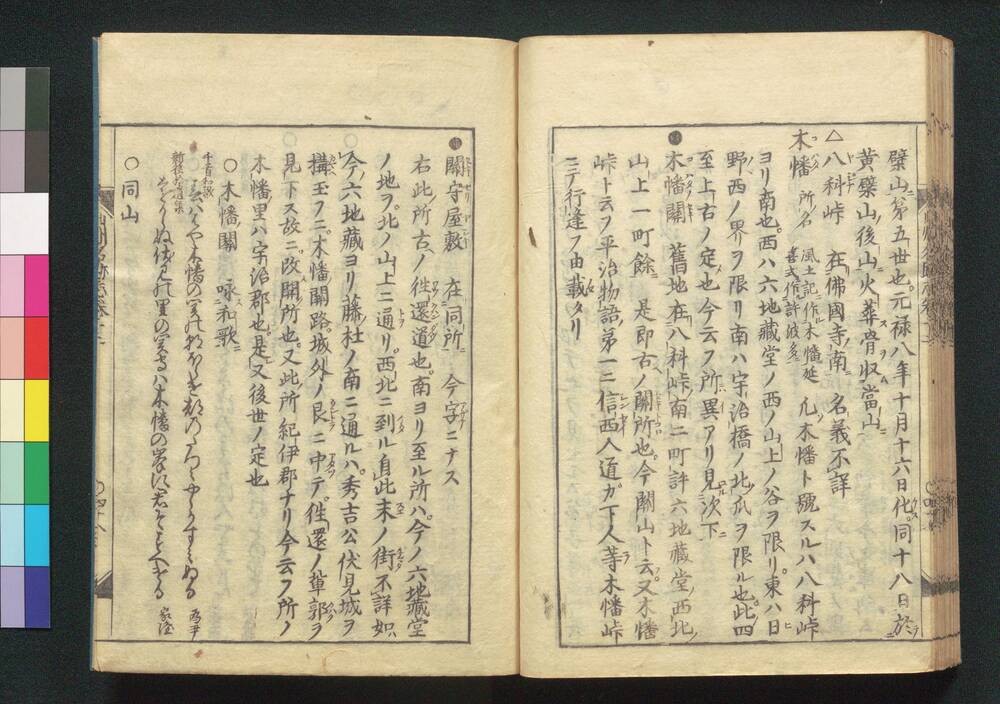 檗山第五世也。元禄八年十月十六日化。同十八日於
黄檗山後山火葬骨収當山
△八科峠 在佛國寺南 名義不詳
木幡 所名 風土記作木幡 延喜式作許波多 凡木幡ト號スルハ八科峠
ヨリ南也。西ハ六地藏堂ノ西ノ山上ノ谷ヲ限リ。東ハ日
野西ノ界ヲ限リ南ハ宇治橋ノ北爪ヲ限ル也此四
至上古ノ定也今云フ所異アリ見次下
●木幡關 舊地在八科峠南二町許六地藏堂西北
山上一町餘 是即古ノ關所也。今關山ト云フ。又木幡
峠ト云フ平治物語第一ニ信西入道ガ下人等木幡峠
ニテ行逢フ由載タリ
●關守屋敷 在同所 今字ニナス
右此所古ノ徃還道也。南ヨリ至ル所ハ。今ノ六地藏堂
ノ地ヲ。北ノ山上ニ通リ。西北ニ到ル自此末ノ街不詳如
今ノ六地藏ヨリ藤杜ノ南ニ通ルハ。秀吉公伏見城ヲ
搆玉フニ。木幡關路。城外ノ艮ニ中テ。徃還ノ輩郭ヲ
見下ス故ニ。改開所也。又此所紀伊郡ナリ今云フ所ノ
木幡ノ里ハ宇治郡也。是又後世ノ定也
○木幡關 咏和歌
千首和歌 為尹
新後 里の 木幡の 家隆
○同山